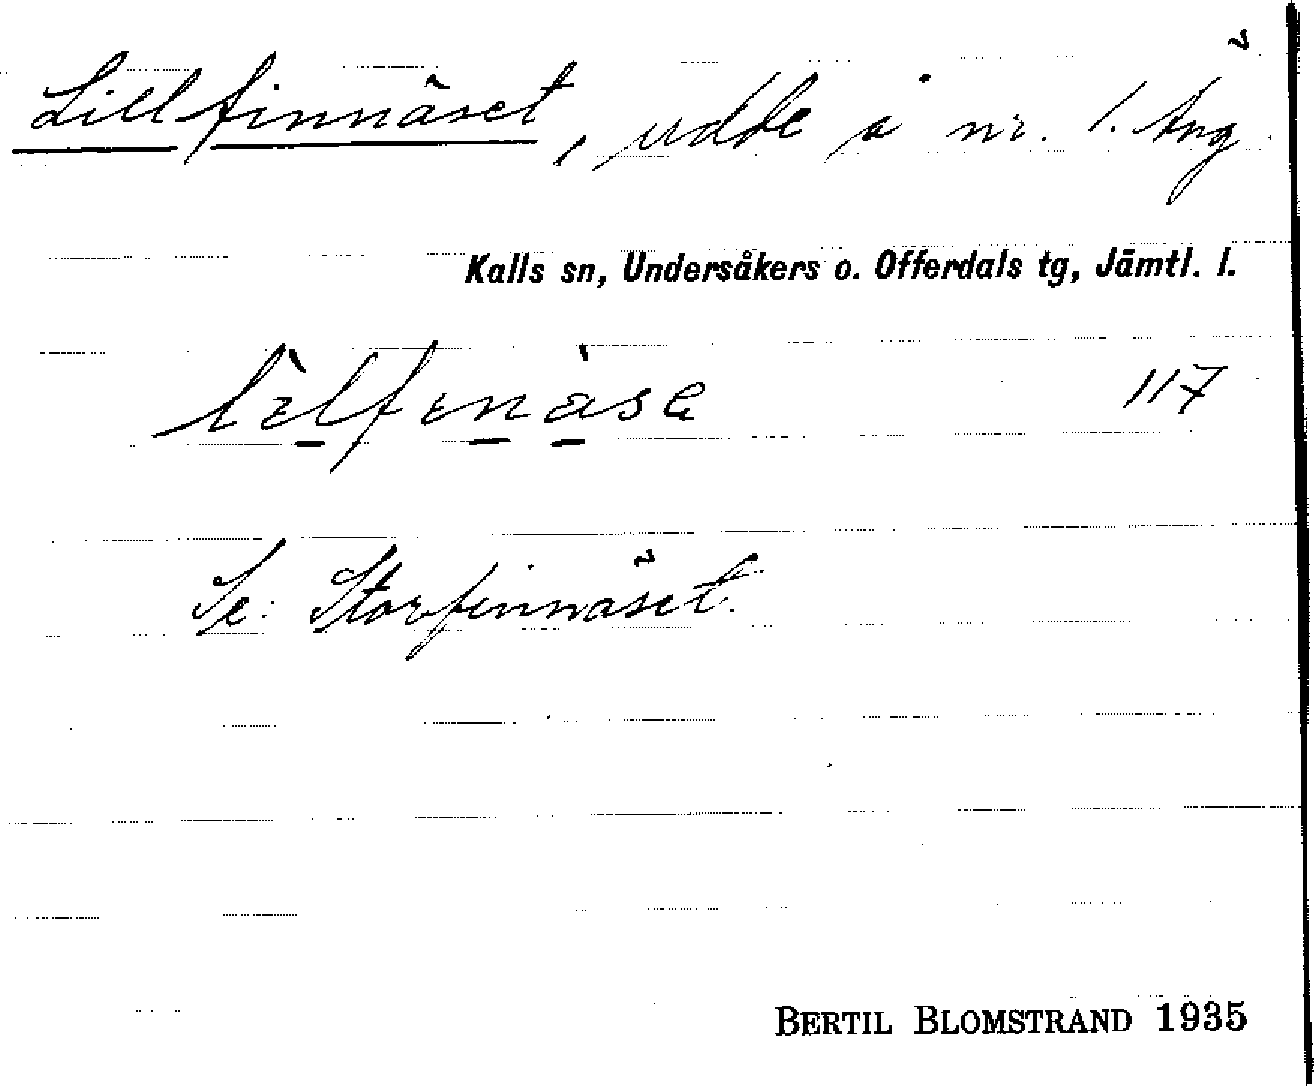 Lillfinnäset, udde å nr. 1. Äng
Kalls sn, Undersåkers o. Offerdals tg, Jämtl. l.
117
Se: Storfinnäset.
BERTIL BLOMSTRAND 1935